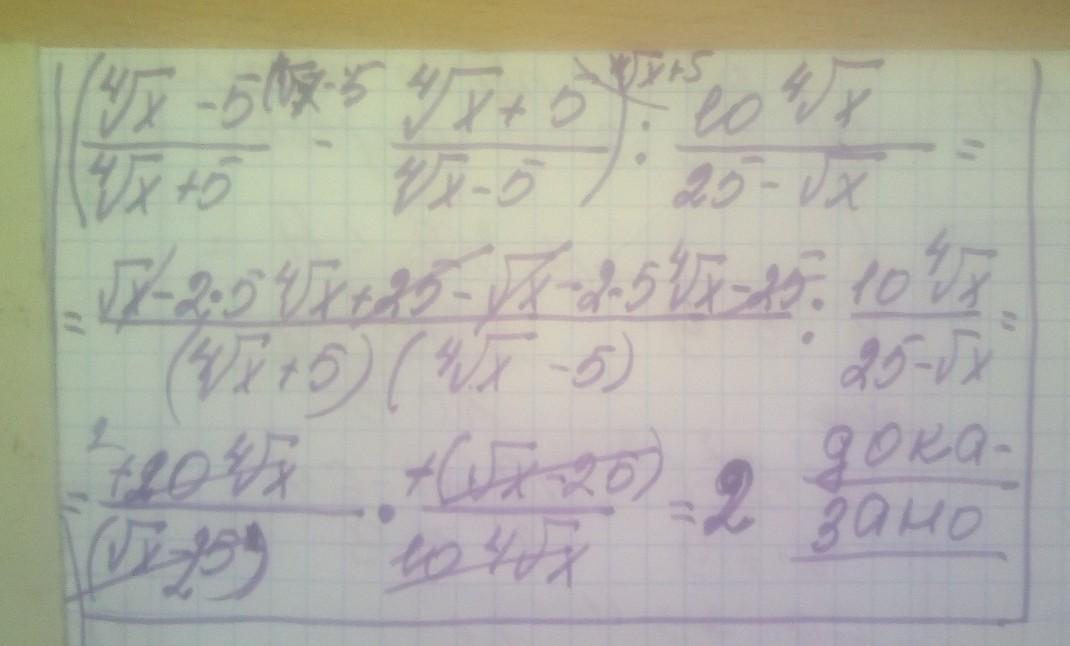 (⁴√x - 5 / ⁴√x + 5 - ⁴√x + 5 / ⁴√x - 5) : 10 ⁴√x / 25 - √x =
= √x - 2·5 ⁴√x + 25 - √x - 2·5 ⁴√x - 25 / (⁴√x + 5) (⁴√x - 5) : 10 ⁴√x / 25 - √x =
= +20 ⁴√x / (√x - 25) · +(√x - 25) / 10 ⁴√x = 2 дока-
зано